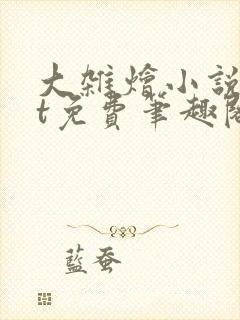 大雜燴小説
t免費筆趣閣
藍蚕